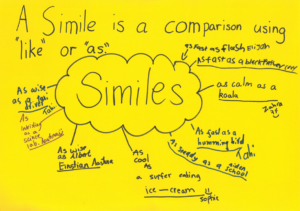 A Simile is a comparison using
"like" or "as."
as fast as flash
As fast as a black Panther
Similes
as calm as a
koala
Zahra
As wise
as a
As
as a
science
lab
As wise
as Albert
Einstian
As
cool
As
a surfer eating
ice-cream
Sophie
As fast as a
humming bird
As speedy as a
school